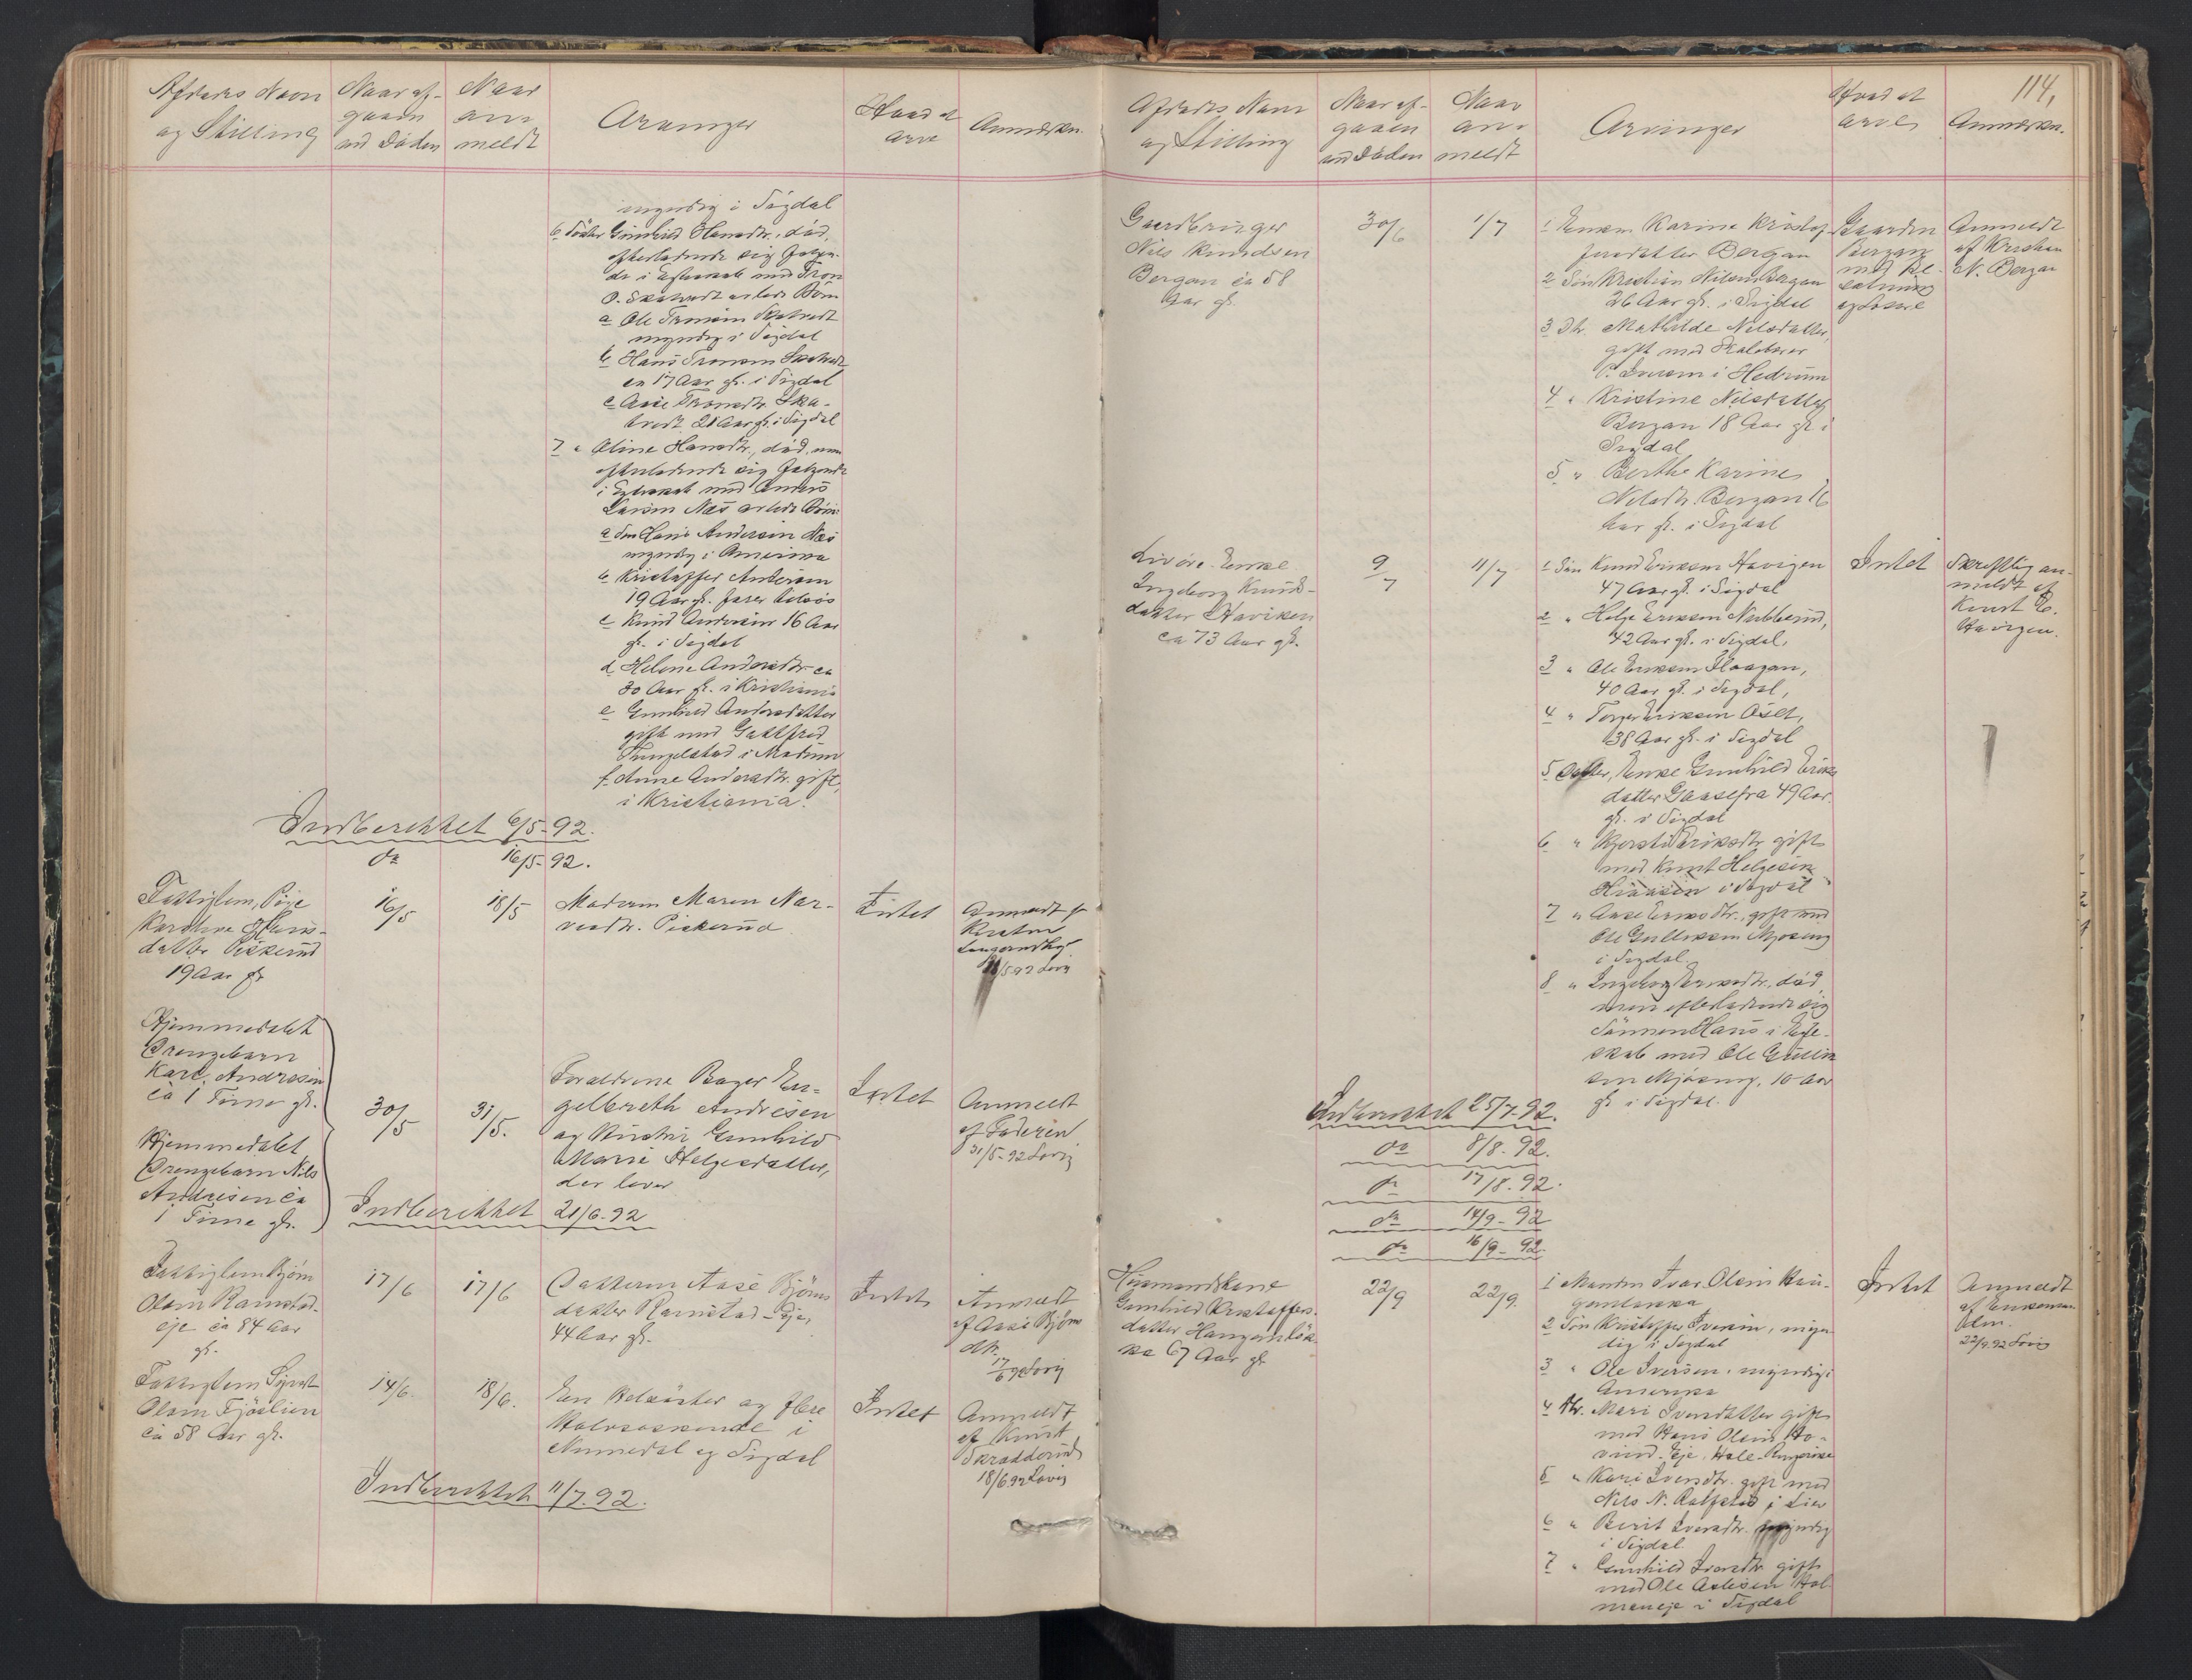 Afdødes Navn
og Stilling
Naar af-
gaaen
ved Døden
Naar
an-
meldt
Arvinger
Hvad et
arve
Anmærkn.
myndig i Sigdal
6 Datter Gunhild Hansdtr., død,
efterladende sig følgen-
de i Egteskab med Tron
O. Skatvedt avlede Børn
a Ole Tronsen Skatvedt
myndig i Sigdal
b Hans Tronsen Skatvedt
en 17 Aar gl. i Sigdal
c Aase Tronsdtr. Ska-
tvedt 21 Aar gl. i Sigdal
7 " Oline Hansdtr., død, men
efterladende sig følgende
i Egteskab med Anders
Larsen Næs avlede Børn:
a Søn Hans Andersen Næs
myndig i Amerika
b Kristoffer Andersen
19 Aar gl. farer tilsøs
c Knud Andersen 16 Aar
gl. i Sigdal
d Helene Andersdtr ca
30 Aar gl. i Kristiania
e Gunhild Andersdatter
gift med Gottfred
i Modum
f Anne Andersdtr. gift,
i Kristiania.
Indberettet 6/5-92.
do 16/5-92.
Fattiglem, Pige
Karoline Hans-
datter Piskerud
19 Aar gl
16/5
18/5
Moderen Maren Nar-
vesdtr. Piskerud
Intet
Anmeldt fr
Kirsten
18/5 92 Lovig
Hjemmedøbt
Drengebarn
Karl Andresen
ca 1 Time gl.
Hjemmedøbt
Drengebarn Nils
Andresen ca
1 Time gl.
30/5
31/5.
Forældrene Bager En-
gelbreth Andresen
og Hustru Gunhild
Marie Helgesdatter,
der lever
Intet
Anmeldt
af Faderen
31/5-92 Lovig
Indberettet 21/6-92
Fattiglem Bjørn
Olsen Ramstad-
eje ca 84 Aar
gl.
17/6
17/6
Datteren Aase Bjørns
datter Ramstad-Eje,
44 Aar gl.
Intet
Anmeldt
af Aase Bjørns
dtr.
17/6 92 Lovig
Fattiglem Sigurd
Olsen Fjøslien
ca 58 Aar gl.
14/6.
18/6.
En Helsøster og flere
Halvsøskende i
Numedal og Sigdal
Intet
Anmeldt
af Knut
Skradderud
18/6 92 Lovig
Indberettet 11/7 92.
114,
Afdødes Navn
og Stilling
Naar af-
gaaen
ved Døden
Naar
an-
meldt
Arvinger
Hvad et
arve
Anmærkn.
Gaardbruger
Nils Knudsen
Bergan ca 58
Aar gl.
30/6
1/7
1 Enken Karine Kristof-
fersdatter Bergan
2 Søn Kristian Nilsen Bergan
26 Aar gl. i Sigdal
3 Dtr. Mathilde Nilsdatter,
gift med Skolelærer
Iversen i Hedrum
4 " Kristine Nilsdatter
Bergan 18 Aar gl. i
Sigdal
5 " Berthe Karine
Nilsdtr. Bergan 16
Aar gl. i Sigdal
Gaarden
Bergan
med Be-
sætning
og Løsøre
Anmeldt
af Kristian
N. Bergan
Livøre-Enke
Ingeborg Knuds-
datter Haviken
ca 73 Aar gl.
9/7
11/7
1 Søn Knud Eriksen Havigen
47 Aar gl. i Sigdal
2 " Helge Eriksen Nubberud,
42 Aar gl. i Sigdal.
3 " Ole Eriksen Haagan,
40 Aar gl. i Sigdal,
4 " Torger Eriksen Øset,
38 Aar gl. i Sigdal
5 Datter, Enke Gunhild Eriks
datter Gaasefra 49 Aar.
gl. i Sigdal
6 " Kjersti Eriksdtr gift
med Knut Helgesen
i Sigdal
7 " Aase Eriksdtr., gift med
Ole Gulliksen Mjøseng
i Sigdal.
8 " Ingeborg Eriksdtr., død
men efterladende sig
Sønnen Hans i Egte-
skab med Ole Gullik
sen Mjøseng, 10 Aar
gl i Sigdal.
Intet
Skriftlig an-
meldt af
Knut E.
Havigen.
Indberettet 25/7-92.
do 8/8-92.
do 17/8-92.
do 14/9-92
do 16/9-92.
Husmandskone
Gunhild Kristoffers-
datter Haugenløk-
ka 67 Aar gl
22/9
22/9.
1 Manden Ivar Olsen Hau-
genløkka
2 Søn Kristoffer Iversen, myn-
dig i Sigdal
3 " Ole Iversen, myndig i
Amerika
4 Dtr. Mari Iversdatter gift
med Hans Olsen Ho-
vind-Eje, Hole-Ringerike
5 " Kari Iversdtr. gift med
Nils N. i Lier
6 " Berit Iversdtr. myndig
i Sigdal
7 " Gunhild Iversdtr. gift
med Ole Aslesen Hol-
meneje i Sigdal
Intet
Anmeldt
af Enkeman
den.
22/9 92 Lovig